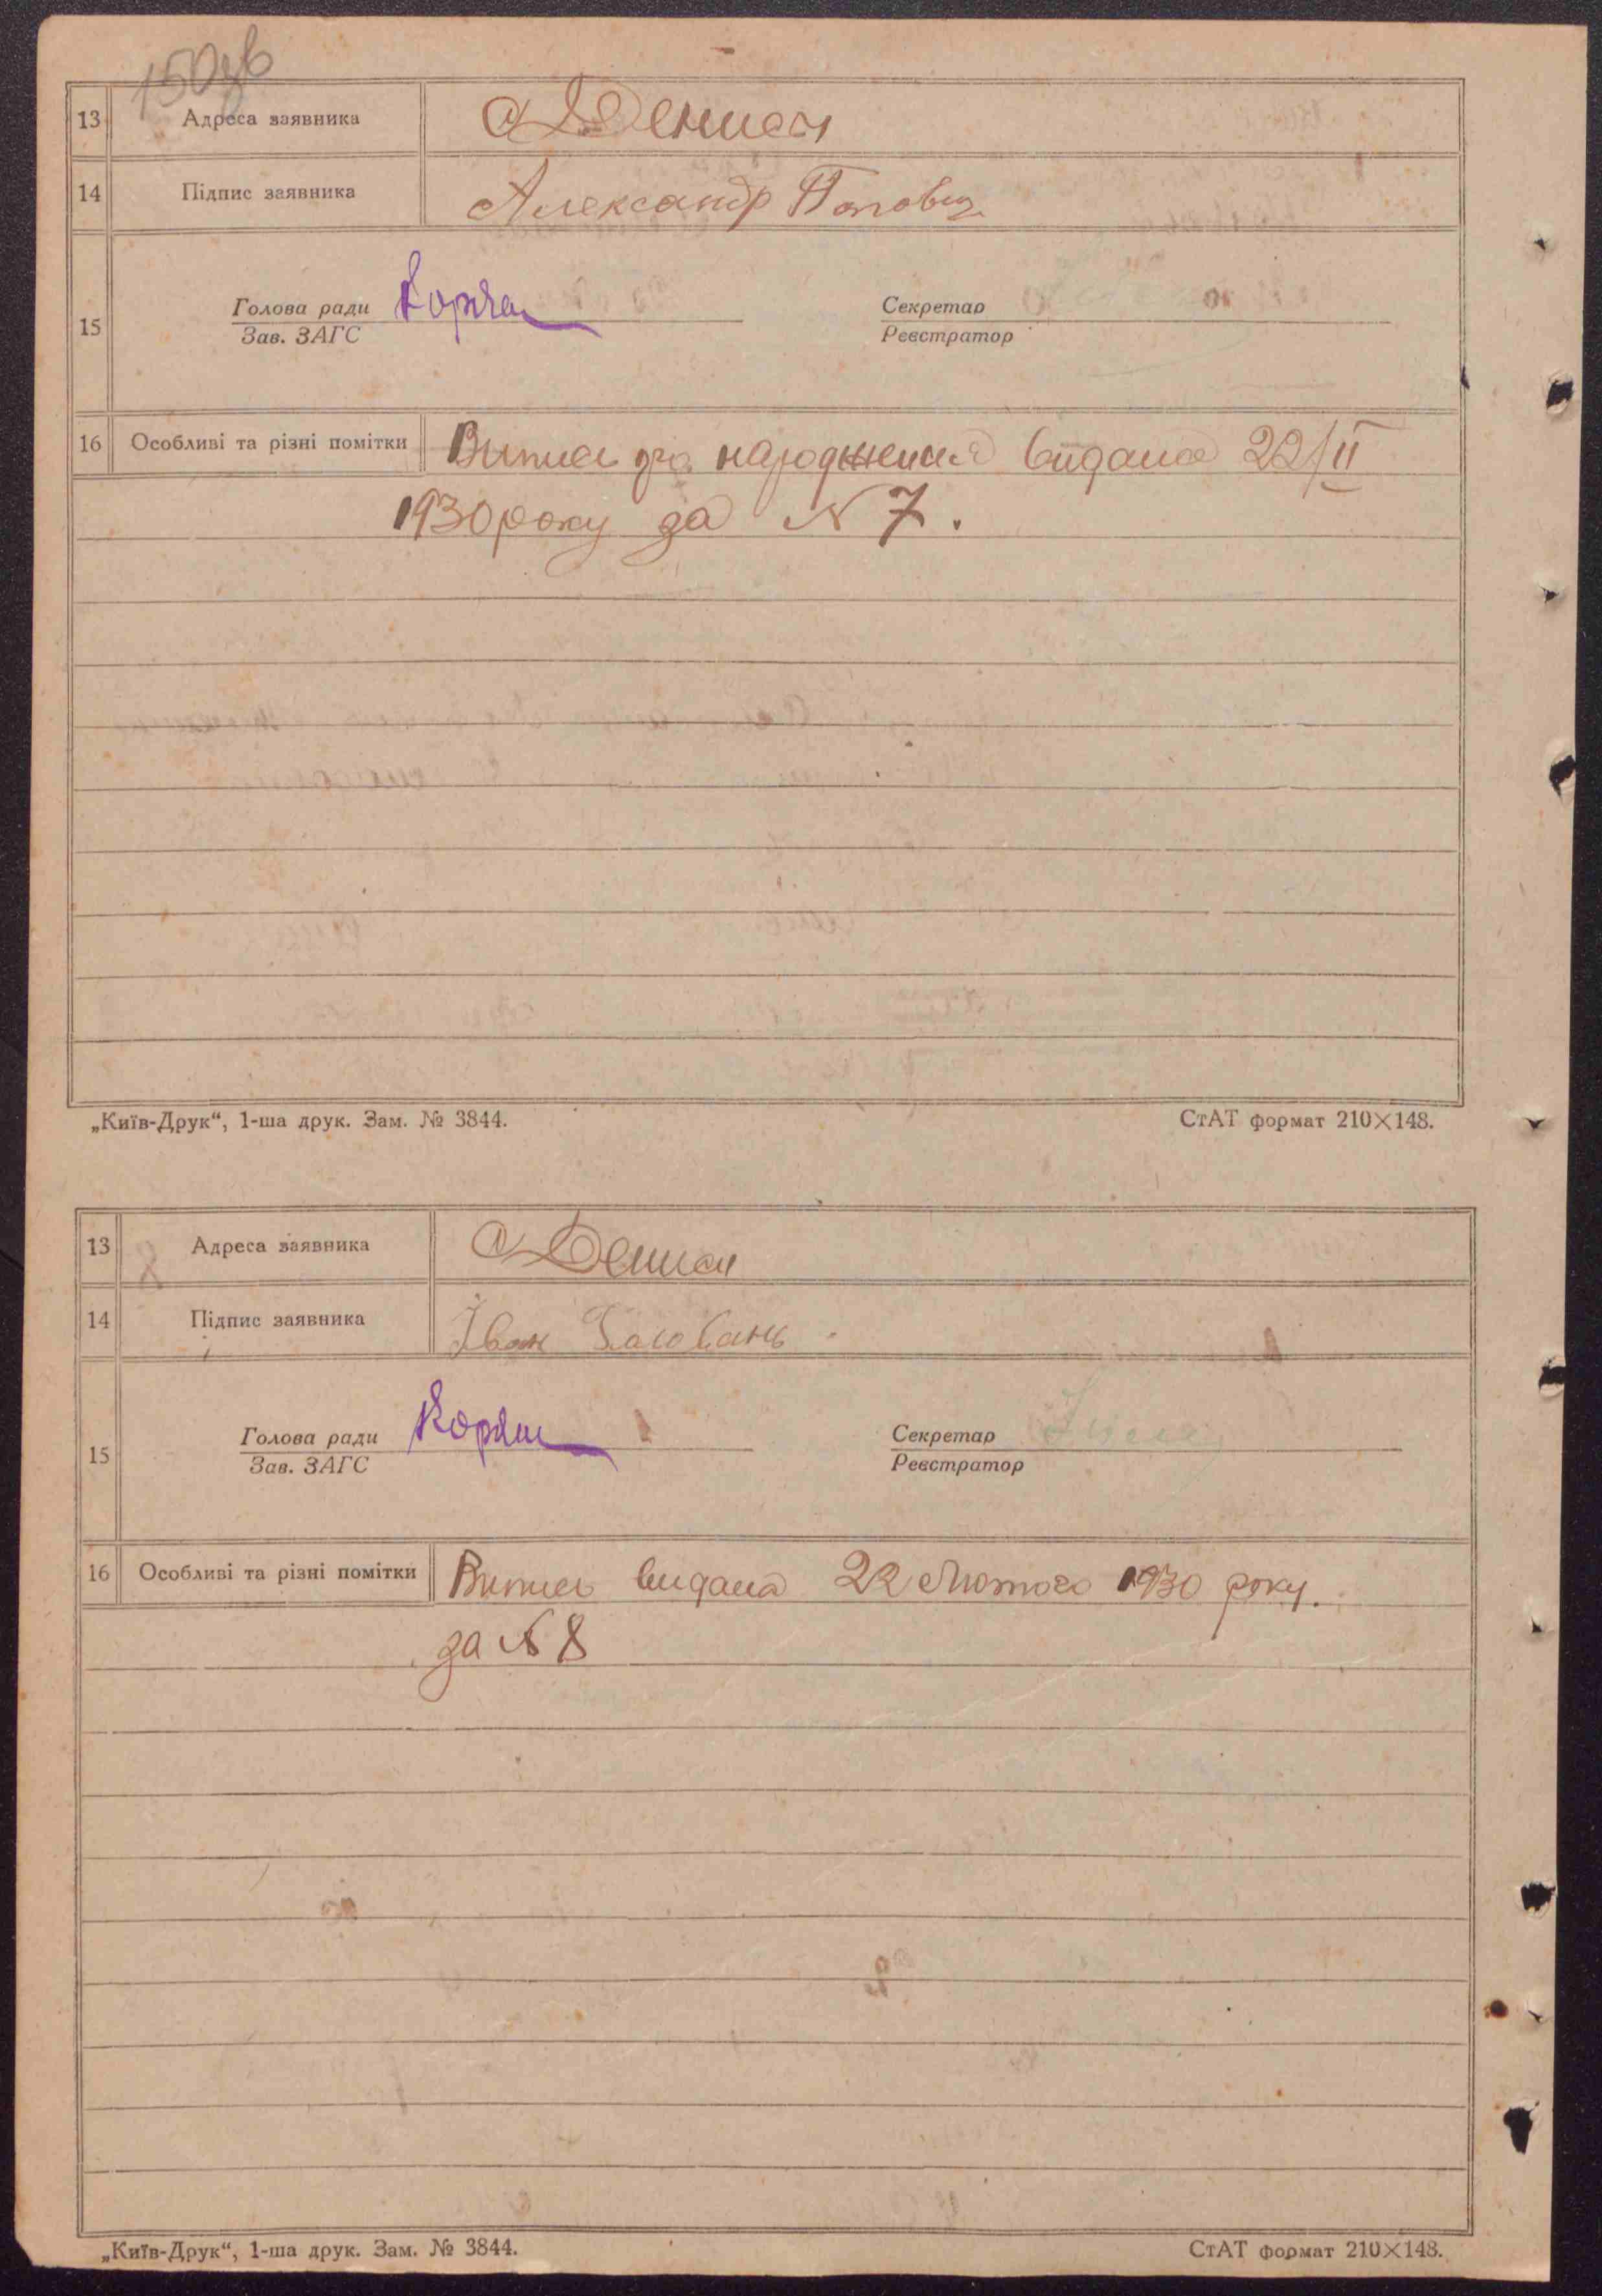 150зв
13 Адреса заявника с Дениси
14 Підпис заявника Александр Попович
15 Голова ради Секретар
Зав. ЗАГС Реєстратор
16 Особливі та різні помітки Випись про народження видана 22/II
1930 року за N 7.
„Київ-Друк“, 1-ша друк. Зам. № 3844. СтАТ формат 210×148.
13 Адреса заявника с Дениси
14 Підпис заявника Іван
15 Голова ради Секретар
Зав. ЗАГС Реєстратор
16 Особливі та різні помітки Випись видана 22 Лютого 1930 року.
за N 8
„Київ-Друк“, 1-ша друк. Зам. № 3844. СтАТ формат 210×148.